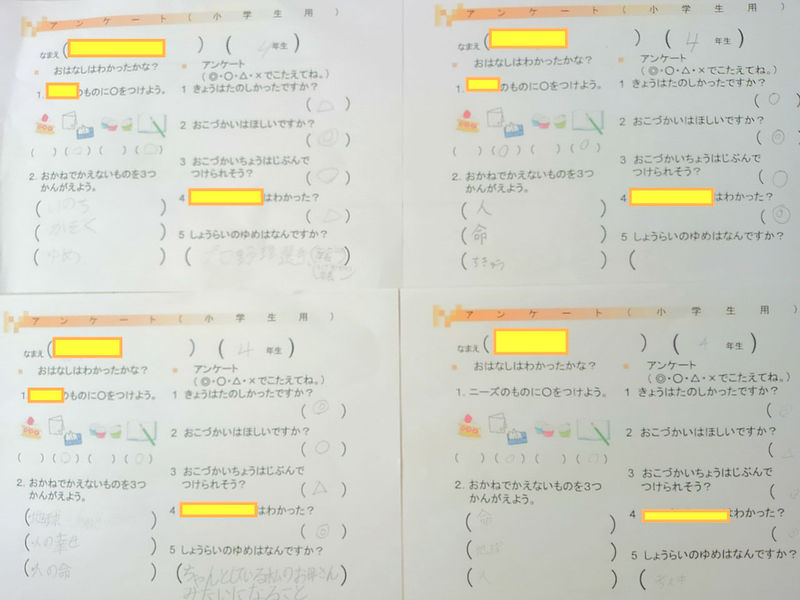 アンケート(小学生用)
なまえ( ) ( 4年生)
おはなしはわかったかな?
1. のものに○をつけよう。
( ) (○) ( ) (○)
2. おかねでかえないものを3つ
かんがえよう。
(いのち)
(かぞく)
(ゆめ)
アンケート
(◎・○・△・×でこたえてね。)
1 きょうはたのしかったですか?
(△)
2 おこづかいはほしいですか?
(◎)
3 おこづかいちょうはじぶんで
つけられそう?
(○)
4 はわかった?
(△)
5 しょうらいのゆめはなんですか?
(プロ野球選手
アンケート(小学生用)
なまえ( ) ( 4年生)
おはなしはわかったかな?
1. のものに○をつけよう。
( ) (○) ( ) (○)
2. おかねでかえないものを3つ
かんがえよう。
(人)
(命)
(ちきゅう)
アンケート
(◎・○・△・×でこたえてね。)
1 きょうはたのしかったですか?
(○)
2 おこづかいはほしいですか?
(◎)
3 おこづかいちょうはじぶんで
つけられそう?
(○)
4 はわかった?
(◎)
5 しょうらいのゆめはなんですか?
(
アンケート(小学生用)
なまえ( ) ( 4年生)
おはなしはわかったかな?
1 のものに○をつけよう。
( ) (○) ( ) (○)
2. おかねでかえないものを3つ
かんがえよう。
(地球)
(人の幸せ)
(人の命)
アンケート
(◎・○・△・×でこたえてね。)
1 きょうはたのしかったですか?
(◎)
2 おこづかいはほしいですか?
(○)
3 おこづかいちょうはじぶんで
つけられそう?
(△)
4 はわかった?
(◎)
5 しょうらいのゆめはなんですか?
(ちゃんとしている私のお母さん)
みたいになること
アンケート(小学生用)
なまえ( ) ( 4年生)
おはなしはわかったかな?
1. ニーズのものに○をつけよう。
( ) (○) ( ) (○)
2. おかねでかえないものを3つ
かんがえよう。
(命)
(地球)
(人)
アンケート
(◎・○・△・×でこたえてね。)
1 きょうはたのしかったですか?
2 おこづかいはほしいですか?
(△
3 おこづかいちょうはじぶんで
つけられそう?
4 はわかった?
5 しょうらいのゆめはなんですか?